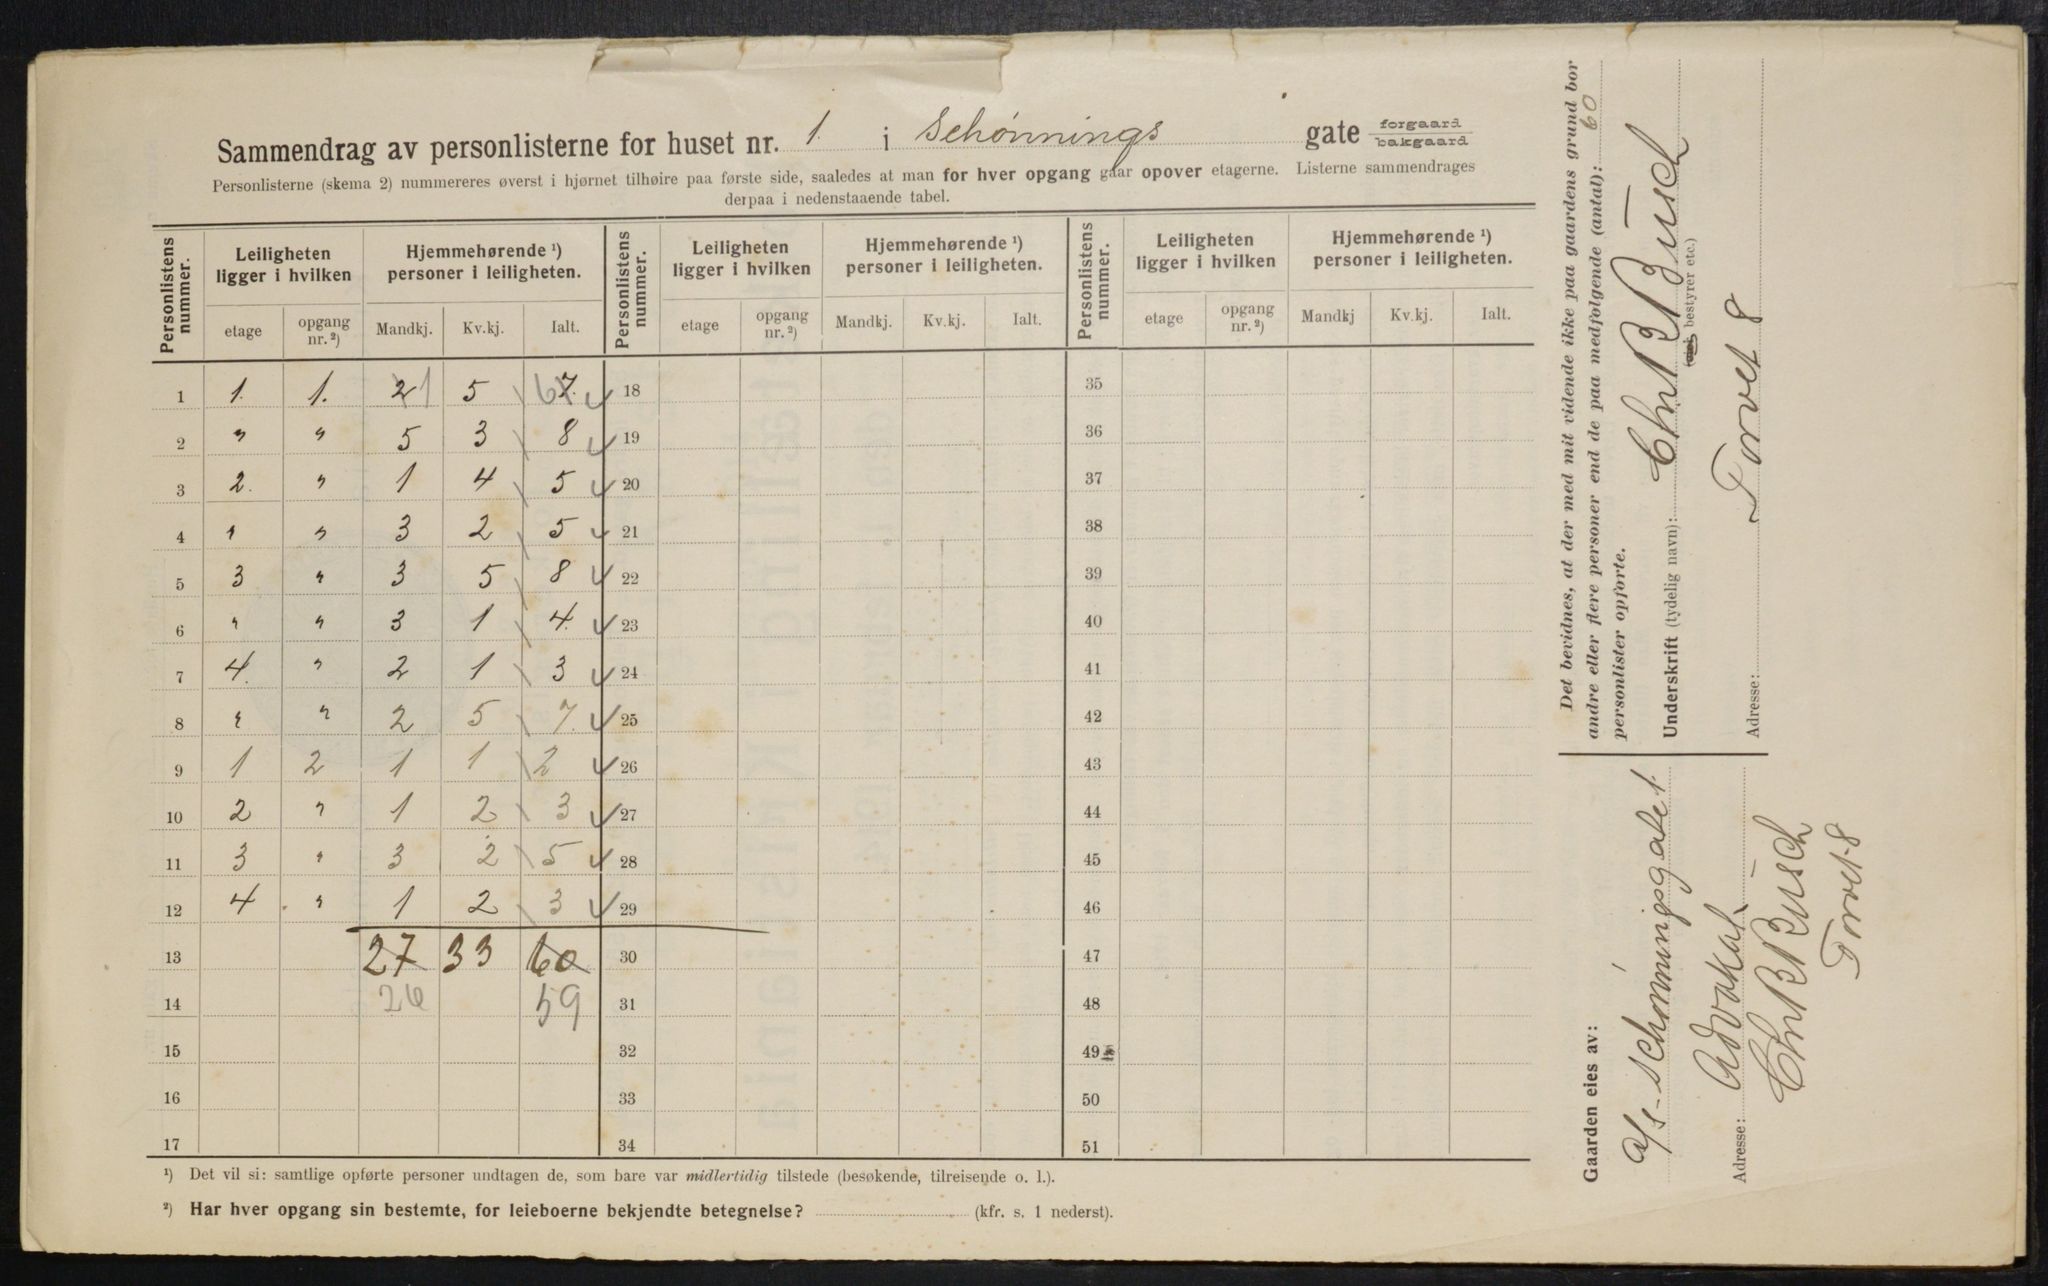 Sammendrag av personlisterne for huset nr. 1. i Schønnings gate forgaard bakgaard
Personlisterne (skema 2) nummereres øverst i hjørnet tilhøire paa første side, saaledes at man for hver opgang gaar opover etagerne. Listerne sammendrages
derpaa i nedenstaaende tabel.
Personlistens nummer. Leiligheten ligger i hvilken Hjemmehørende ¹) personer i leiligheten. Personlistens nummer. Leiligheten ligger i hvilken Hjemmehørende ¹) personer i leiligheten. Personlistens nummer. Leiligheten ligger i hvilken Hjemmehørende ¹) personer i leiligheten.
etage opgang nr. ²) Mandkj. Kv.kj. Ialt. etage opgang nr. ²) Mandkj. Kv.kj. Ialt. etage opgang nr. ²) Mandkj Kv.kj. Ialt.
1 1. 1. 2 1 5 6 7. 18 35
2 " " 5 3 8 19 36
3 2. " 1 4 5 20 37
4 " " 3 2 5 21 38
5 3 " 3 5 8 22 39
6 " " 3 1 4. 23 40
7 4. " 2 1 3 24 41
8 " " 2 5 7. 25 42
9 1 2 1 1 2 26 43
10 2 " 1 2 3 27 44
11 3 " 3 2 5 28 45
12 4 " 1 2 3 29 46
13 27 33 60 30 47
14 26 59 31 48
15 32 49
16 33 50
17 34 51
¹) Det vil si: samtlige opførte personer undtagen de, som bare var midlertidig tilstede (besøkende, tilreisende o. l.).
²) Har hver opgang sin bestemte, for leieboerne bekjendte betegnelse? (kfr. s. 1 nederst).
Det bevidnes, at der med mit vidende ikke paa gaardens grund bor
andre eller flere personer end de paa medfølgende (antal): 60
personlister opførte.
Underskrift (tydelig navn): Chr B Busch
bestyrer etc.)
Adresse: Torvet 8
Gaarden eies av:
A/s Schønningsgate 1.
Adresse: Advokat
Chr B Busch
Torvet 8